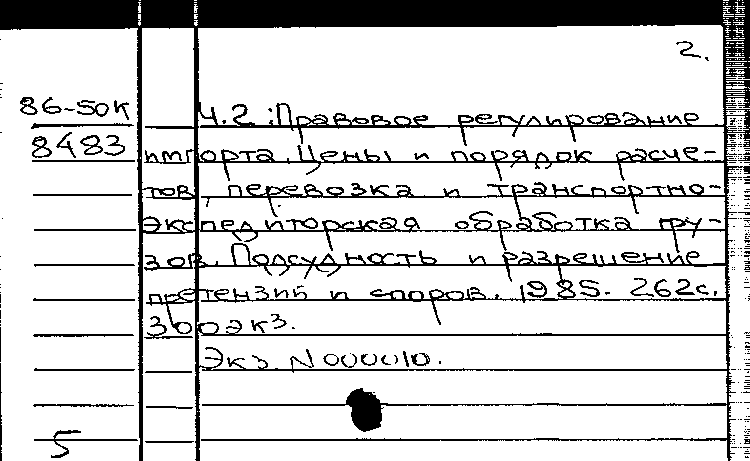 2.
86-50к
8483
Ч.2: Правовое регулирование
импорта. Цены и порядок расче-
тов, перевозка и транспортно-
экспедиторская обработка гру-
зов. Подсудность и разрешение
претензий и споров. 1985. 262с.
300экз.
Экз. N000010.
5